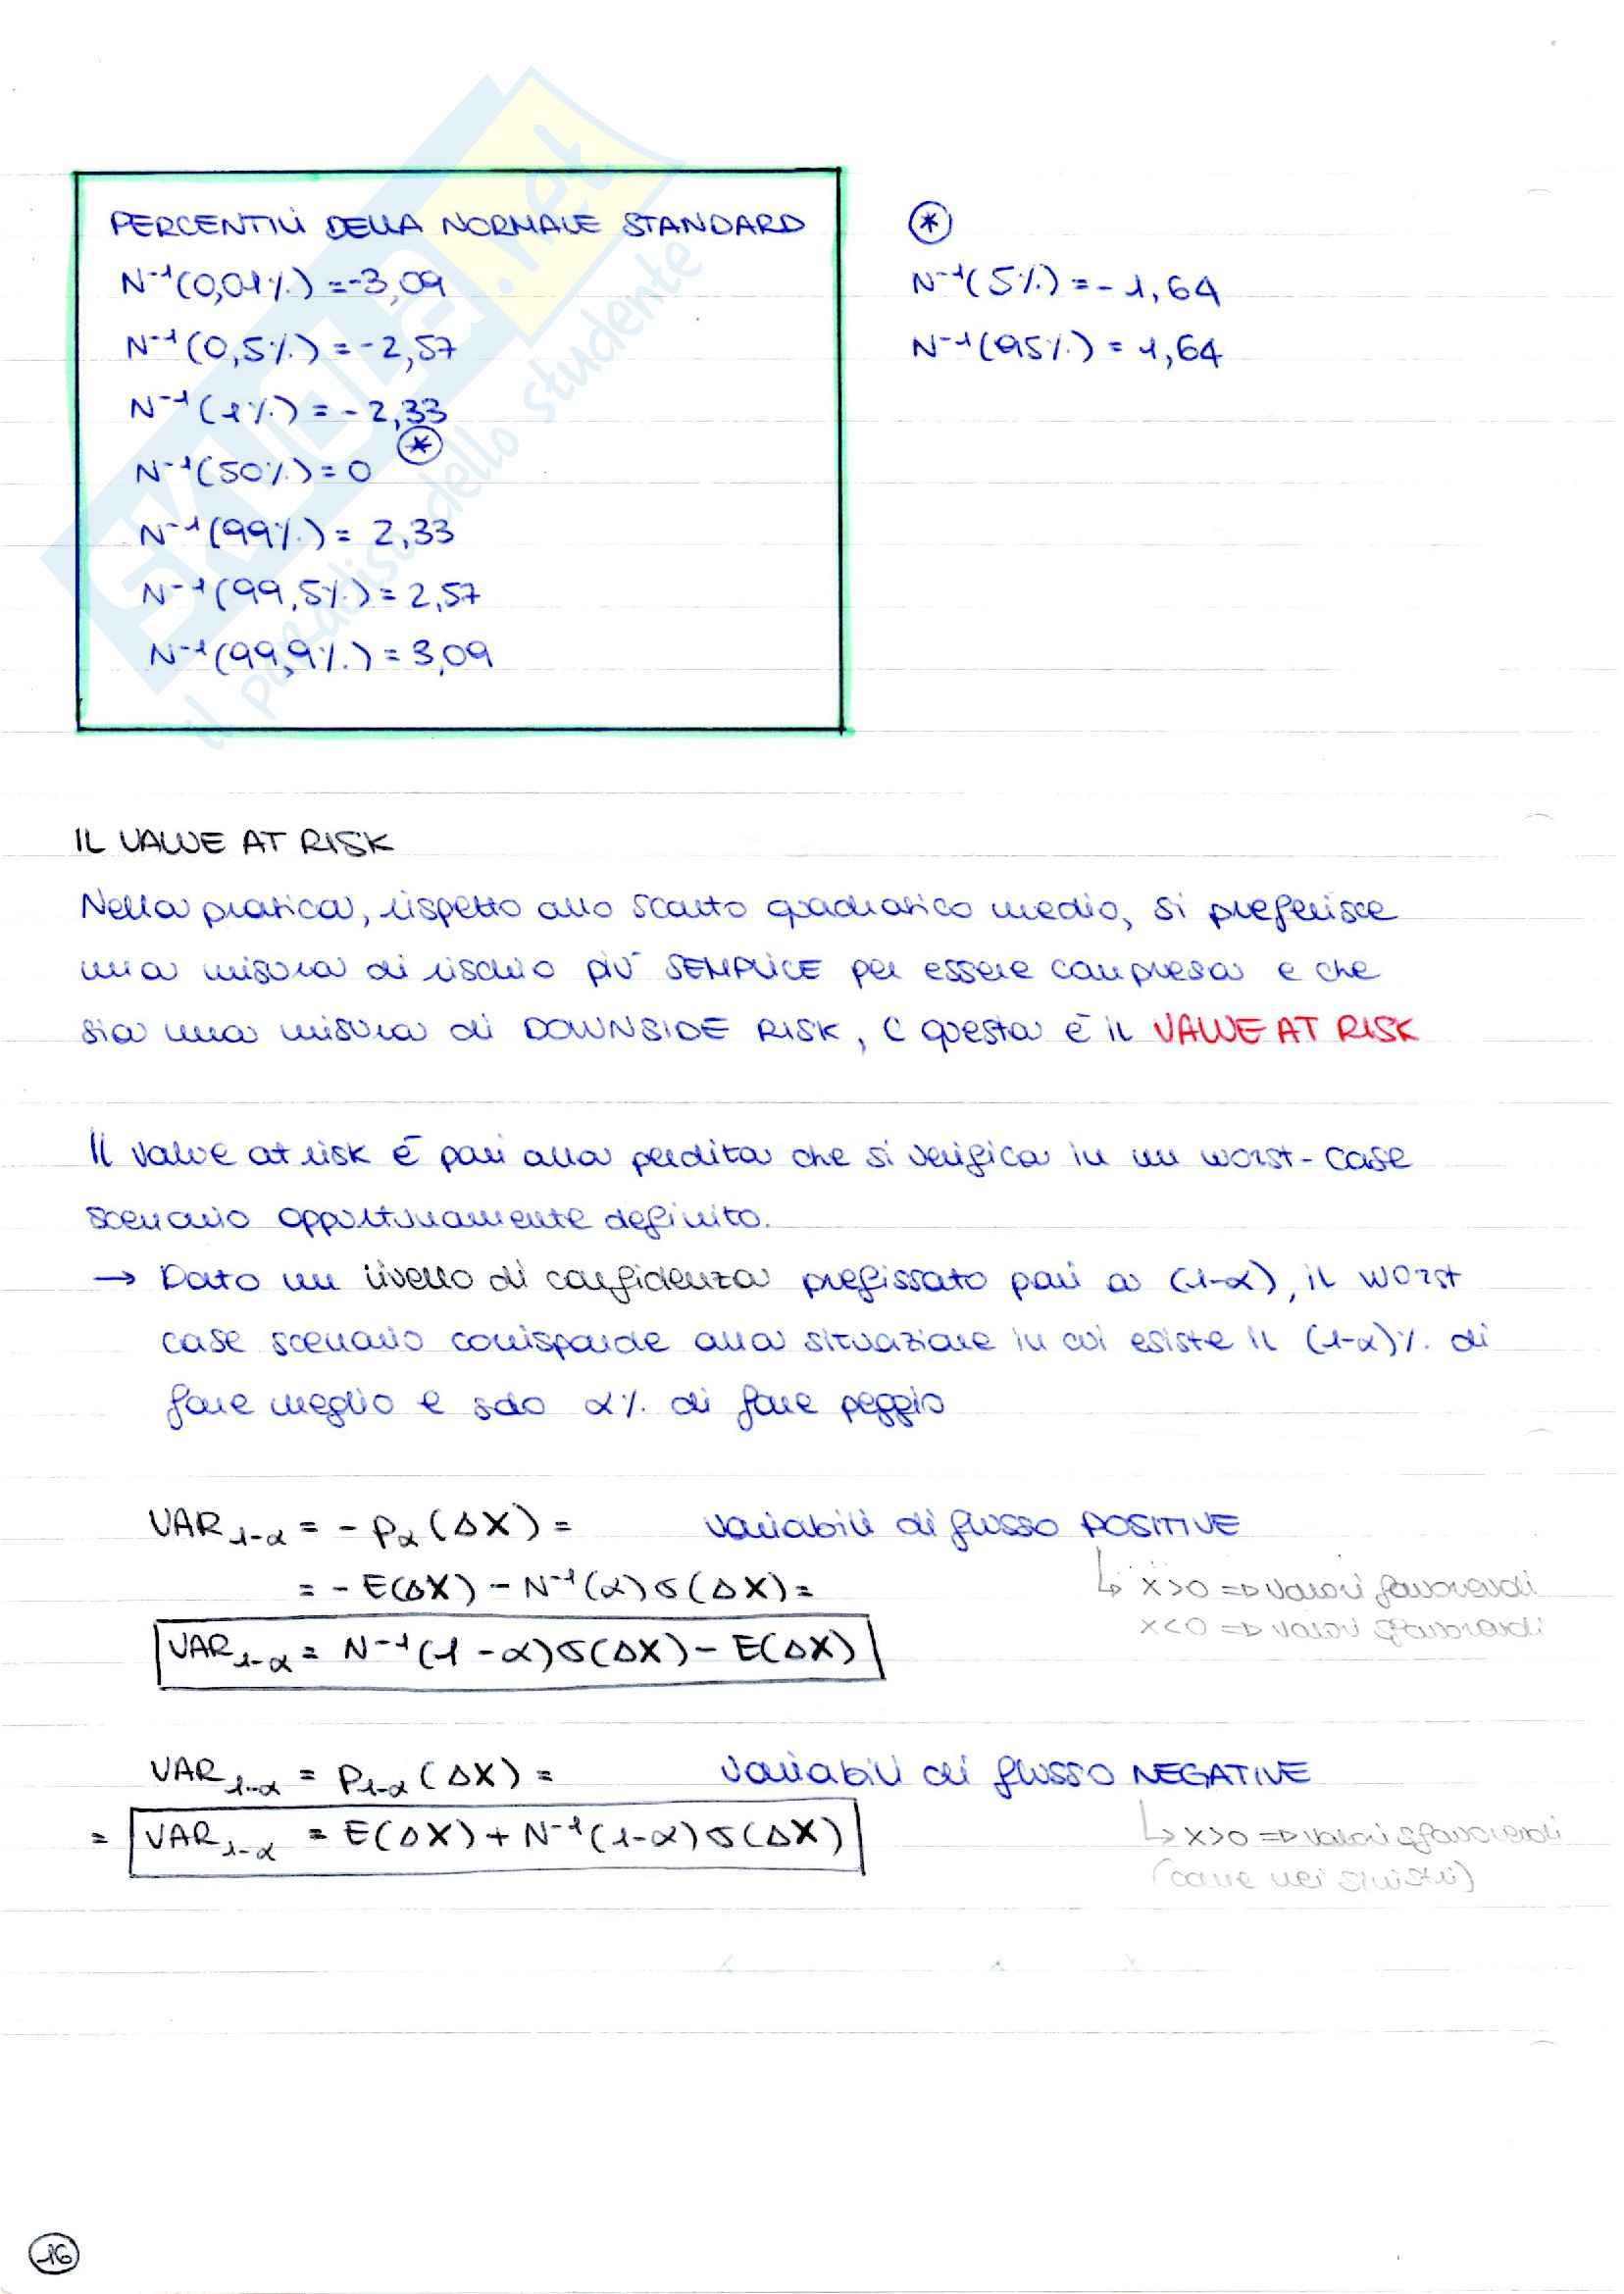 PERCENTILI DELLA NORMALE STANDARD
N⁻¹(0,01%) = -3,09
N⁻¹(0,5%) = -2,57
N⁻¹(1%) = -2,33
*
N⁻¹(50%) = 0
N⁻¹(99%) = 2,33
N⁻¹(99,5%) = 2,57
N⁻¹(99,9%) = 3,09
*
N⁻¹(5%) = -1,64
N⁻¹(95%) = 1,64
SKUOLA.net
il paradiso dello studente
IL VALUE AT RISK
Nella pratica, rispetto allo scarto quadratico medio, si preferisce
una misura di rischio più SEMPLICE per essere compresa e che
sia una misura di DOWNSIDE RISK, e questa è il VALUE AT RISK
Il value at risk è pari alla perdita che si verifica in un worst-case
scenario opportunamente definito.
→ Dato un livello di confidenza prefissato pari a (1-α), il worst
case scenario corrisponde alla situazione in cui esiste il (1-α)% di
fare meglio e solo α% di fare peggio
VAR₁₋α = - pα (ΔX) = variabili di flusso POSITIVE
= - E(ΔX) - N⁻¹(α) σ(ΔX) = ↳ x>0 => valori favorevoli
x<0 => valori sfavorevoli
VAR₁₋α = N⁻¹(1-α) σ(ΔX) - E(ΔX)
VAR₁₋α = p₁₋α (ΔX) = variabili di flusso NEGATIVE
= VAR₁₋α = E(ΔX) + N⁻¹(1-α) σ(ΔX) ↳ x>0 => valori sfavorevoli
(come nei sinistri)
16